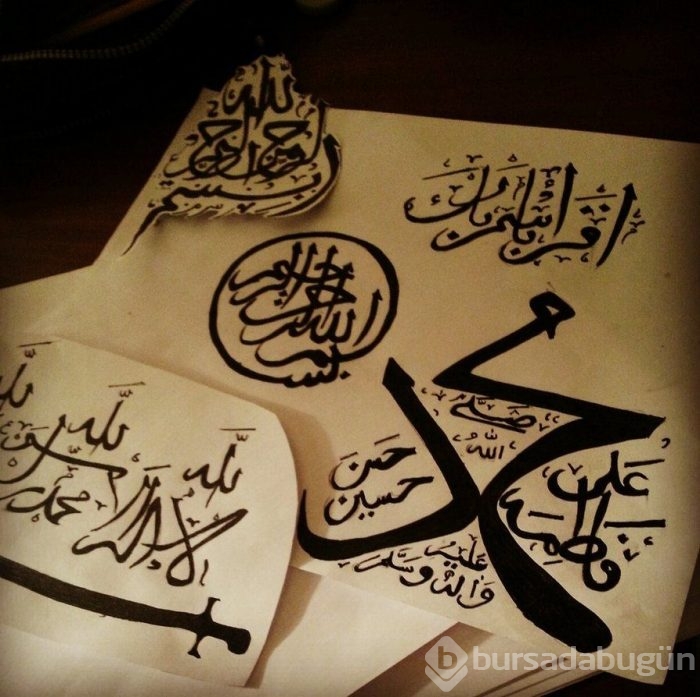 بسم الله الرحمن الرحيم
اقرأ باسم ربك
بسم الله الرحمن الرحيم
محمد
صلى الله
عليه
وآله وسلم
علي
فاطمة
حسن
حسين
لا إله إلا الله محمد رسول الله
bursadabugün